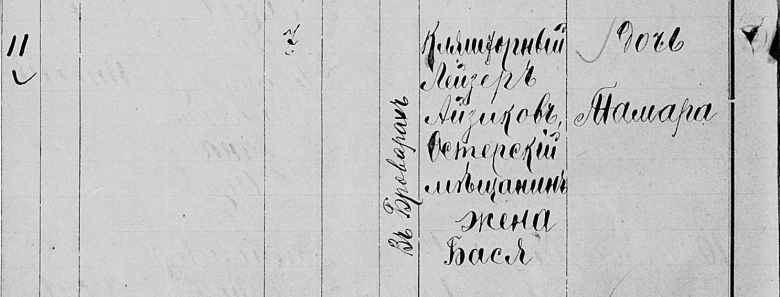 11
7
Въ Броварахъ
Кляшторный
Лейзеръ
Айзиковъ,
Остерскій
мѣщанинъ
жена
Бася
дочь
Тамара